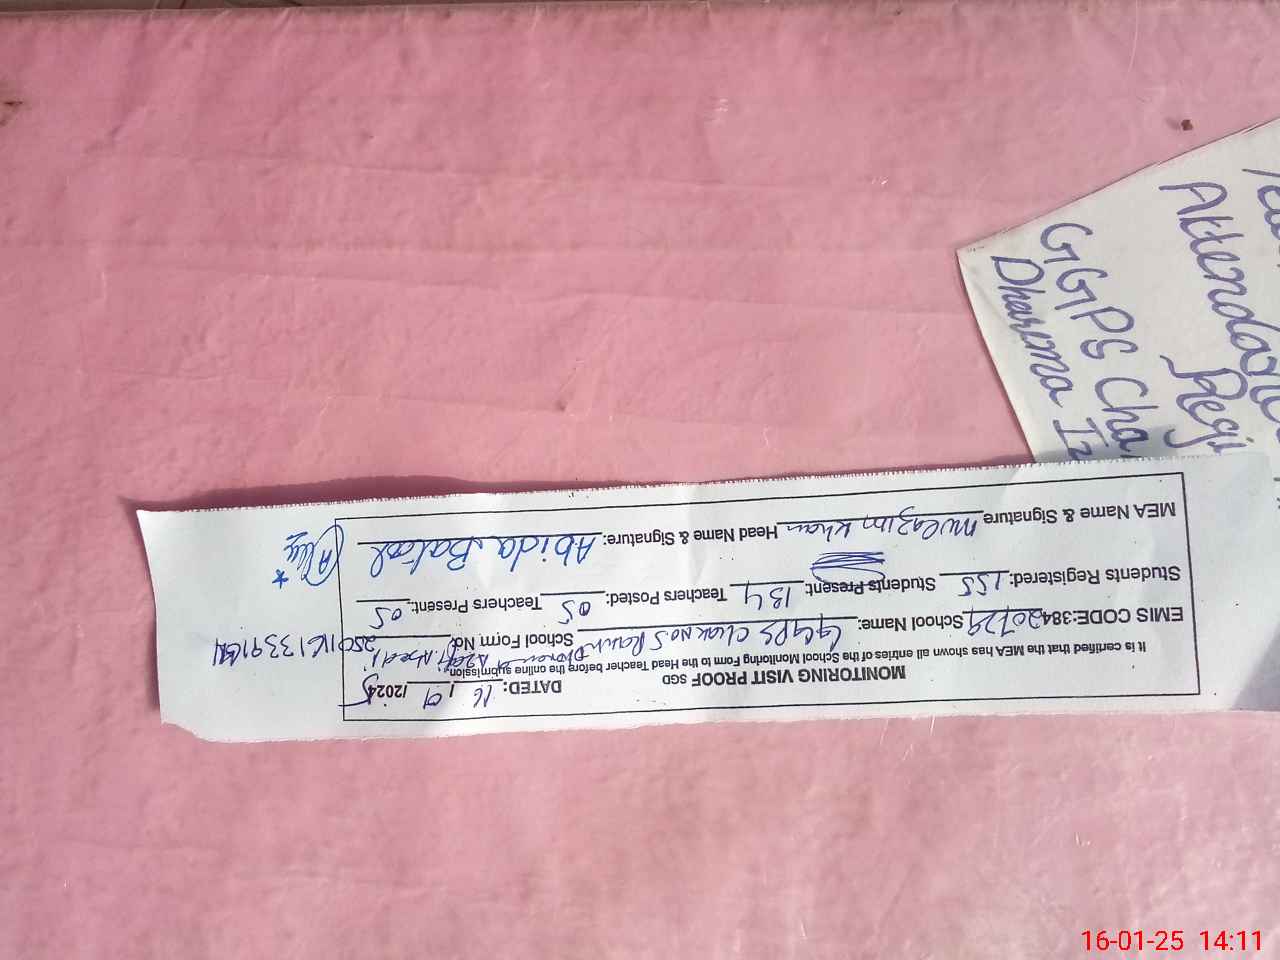 MONITORING VISIT PROOF SGD DATED: 16/9/2025
It is certified that the MEA has shown all entries of the School Monitoring Form to the Head Teacher before the online submission.
EMIS CODE:38420729 School Name: GGPS Chak No 5 School Form No.
Students Registered: 155 Students Present: 134 Teachers Posted: 05 Teachers Present: 05
MEA Name & Signature Mulazim Khan Head Name & Signature: Abida Batool
Attendance
Regi
GGPS Cha
Dharema
16-01-25 14:11